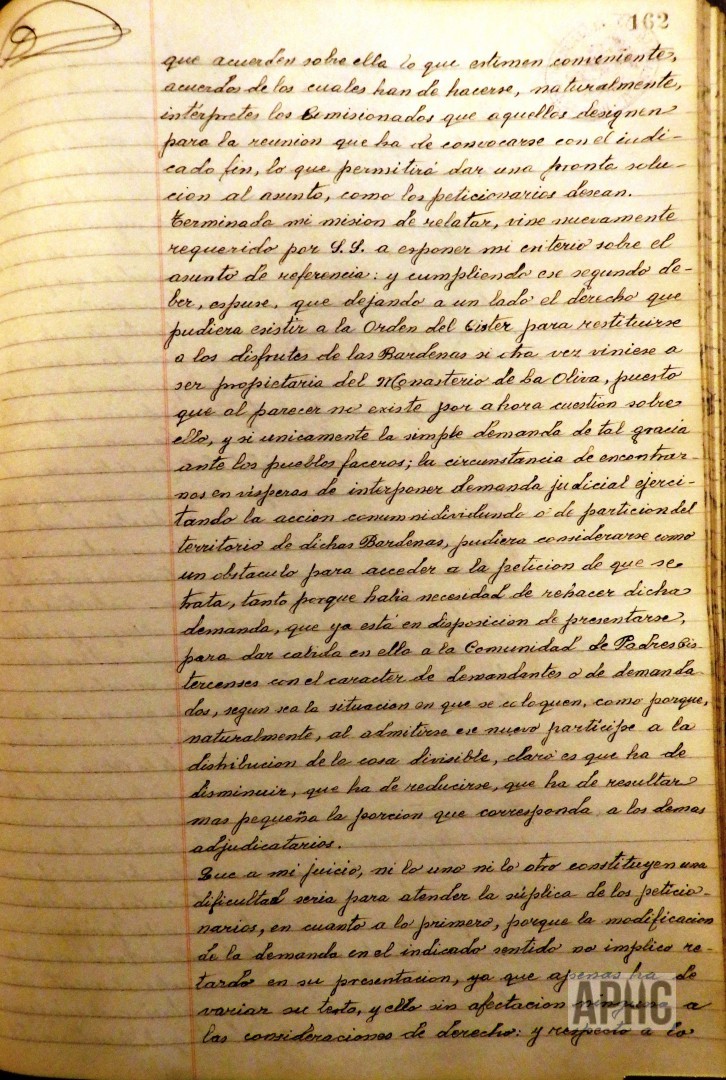 162
que acuerden sobre ella lo que estimen conveniente,
acuerdos de los cuales han de hacerse, naturalmente,
intérpretes los Comisionados que aquellos designen
para la reunion que ha de convocarse con el indi-
cado fin, lo que permitirá dar una pronta solu-
cion al asunto, como los peticionarios desean.
Terminada mi mision de relatar, vine nuevamente
requerido por S.S. a esponer mi criterio sobre el
asunto de referencia: y cumpliendo ese segundo de-
ber, espuse, que dejando a un lado el derecho que
pudiera esistir a la Orden del Cister para restituirse
a los disfrutes de las Bardenas si otra vez viniese a
ser propietaria del Monasterio de La Oliva, puesto
que al parecer no existe por ahora cuestion sobre
ello, y si unicamente la simple demanda de tal gracia
ante los pueblos faceros; la circunstancia de encontrar-
nos en visperas de interponer demanda judicial ejerci-
tando la accion comunni dividundo o de particion del
territorio de dichas Bardenas, pudiera considerarse como
un obstaculo para acceder a la peticion de que se
trata, tanto porque habia necesidad de rehacer dicha
demanda, que ya está en disposicion de presentarse,
para dar cabida en ella a la Comunidad de Padres Cis-
tercenses con el caracter de demandantes o de demanda-
dos, segun sea la situacion en que se coloquen, como porque,
naturalmente, al admitirse ese nuevo partícipe a la
distribucion de la cosa divisible, claro es que ha de
disminuir, que ha de reducirse, que ha de resultar
mas pequeña la porcion que corresponda a los demas
adjudicatarios.
Que a mi juicio, ni lo uno ni lo otro constituyen una
dificultad seria para atender la súplica de los peticio-
narios, en cuanto a lo primero, porque la modificacion
de la demanda en el indicado sentido no implica re-
tardo en su presentacion, ya que apenas ha de
variar su testo, y ello sin afectacion ninguna a
las consideraciones de derecho: y respecto a lo
APHC